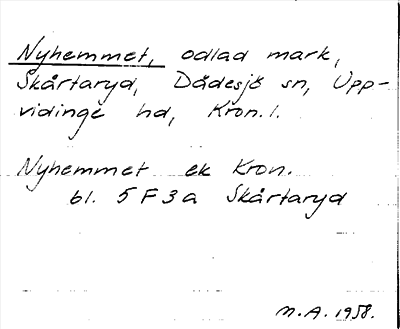 Nyhemmet, odlad mark,
Skårtaryd, Dädesjö sn, Upp-
vidinge hd, Kron. l.
Nyhemmet ek Kron.
bl. 5 F 3 a Skårtaryd
M.A. 1958.